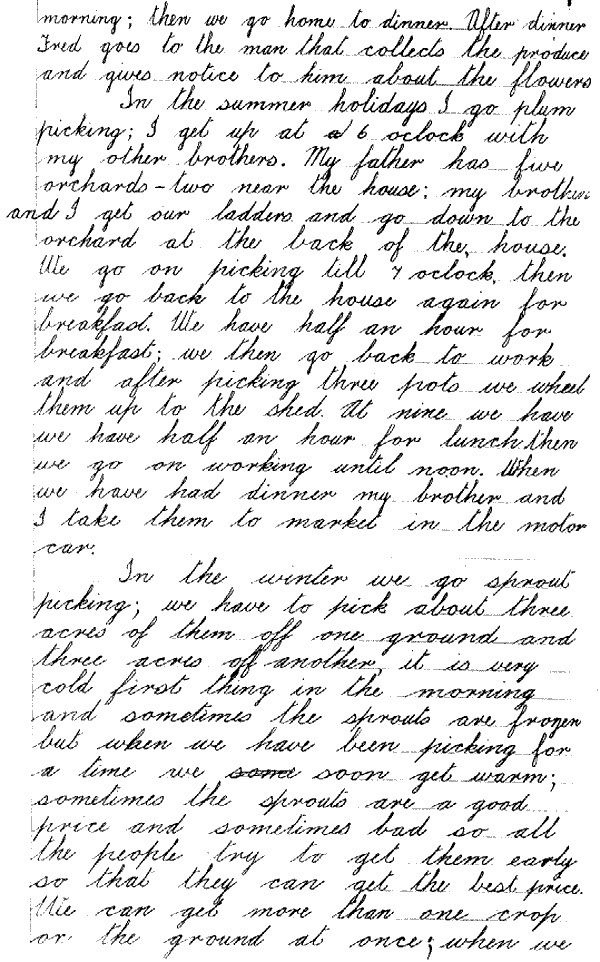 morning; then we go home to dinner. After dinner
Fred goes to the man that collects the produce
and gives notice to him about the flowers
In the summer holidays I go plum
picking; I get up at 6 oclock with
my other brothers. My father has five
orchards - two near the house; my brothers
and I get our ladders and go down to the
orchard at the back of the, house.
We go on picking till 7 oclock, then
we go back to the house again for
breakfast. We have half an hour for
breakfast; we then go back to work
and after picking three pots we wheel
them up to the shed. At nine we have
we have half an hour for lunch then
we go on working until noon. When
we have had dinner my brother and
I take them to market in the motor
car.
In the winter we go sprout
picking; we have to pick about three
acres of them off one ground and
three acres off another, it is very
cold first thing in the morning
and sometimes the sprouts are frozen
but when we have been picking for
a time we some soon get warm;
sometimes the sprouts are a good
price and sometimes bad so all
the people try to get them early
so that they can get the best price.
We can get more than one crop
on the ground at once; when we